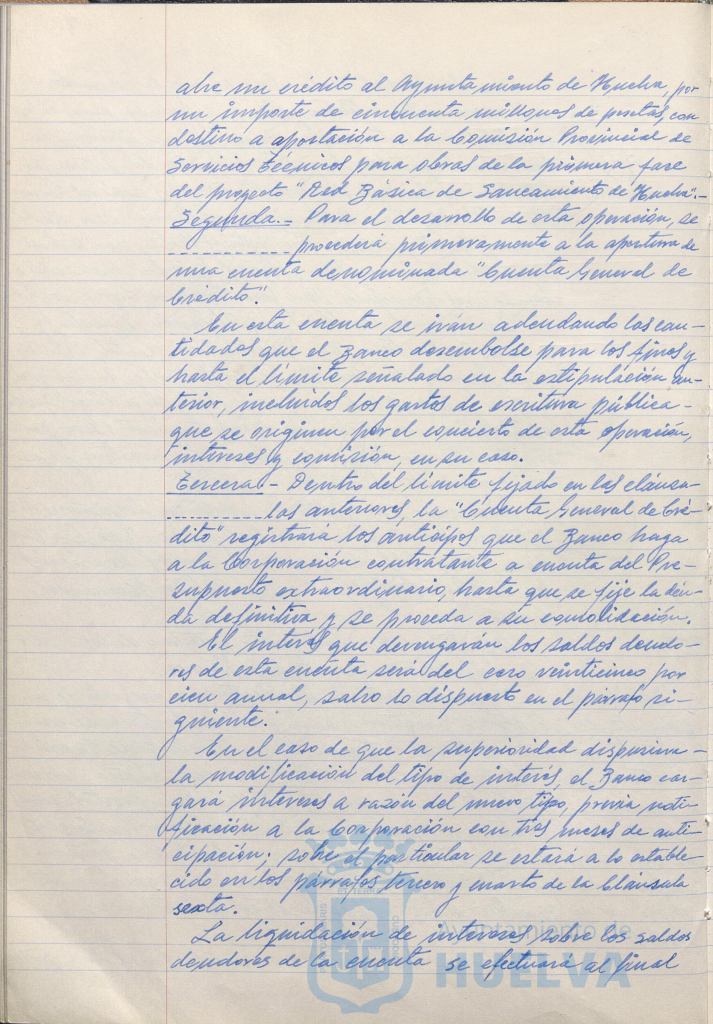 abre un crédito al Ayuntamiento de Huelva, por
un importe de cincuenta millones de pesetas, con
destino a aportación a la Comisión Provincial de
Servicios Técnicos para obras de la primera fase
del proyecto "Red Básica de Saneamiento de Huelva".-
Segunda.- Para el desarrollo de esta operación, se
------------ procederá primeramente a la apertura de
una cuenta denominada "Cuenta General de
Crédito".
En esta cuenta se irán adeudando las can-
tidades que el Banco desembolse para los fines y
hasta el límite señalado en la estipulación an-
terior, incluidos los gastos de escritura pública-
que se originen por el concierto de esta operación,
intereses y comisión, en su caso.
Tercera.- Dentro del límite fijado en las cláusu-
---------- las anteriores, la "Cuenta General de Cré-
dito" registrará los anticipos que el Banco haga
a la Corporación contratante a cuenta del Pre-
supuesto extraordinario, hasta que se fije la deu-
da definitiva y se proceda a su consolidación.
El interés que devengarán los saldos deudo-
res de esta cuenta será del cero veinticinco por
cien anual, salvo lo dispuesto en el párrafo si-
guiente.
En el caso de que la superioridad dispusiera-
la modificación del tipo de interés, el Banco car-
gará intereses a razón del nuevo tipo, previa noti-
ficación a la Corporación con tres meses de anti-
cipación; sobre el particular se estará a lo estable-
cido en los párrafos tercero y cuarto de la Cláusula
sexta.
La liquidación de intereses sobre los saldos
deudores de la cuenta se efectuará al final
Ayuntamiento de
HUELVA